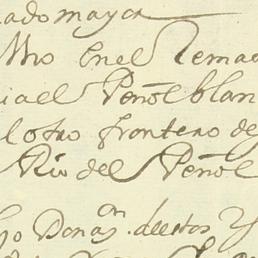 ado mayca
Mro En el Remad
ia el Peñol blan
l otro frontero de
Rio del Peñol
go Donaon. de estos Y